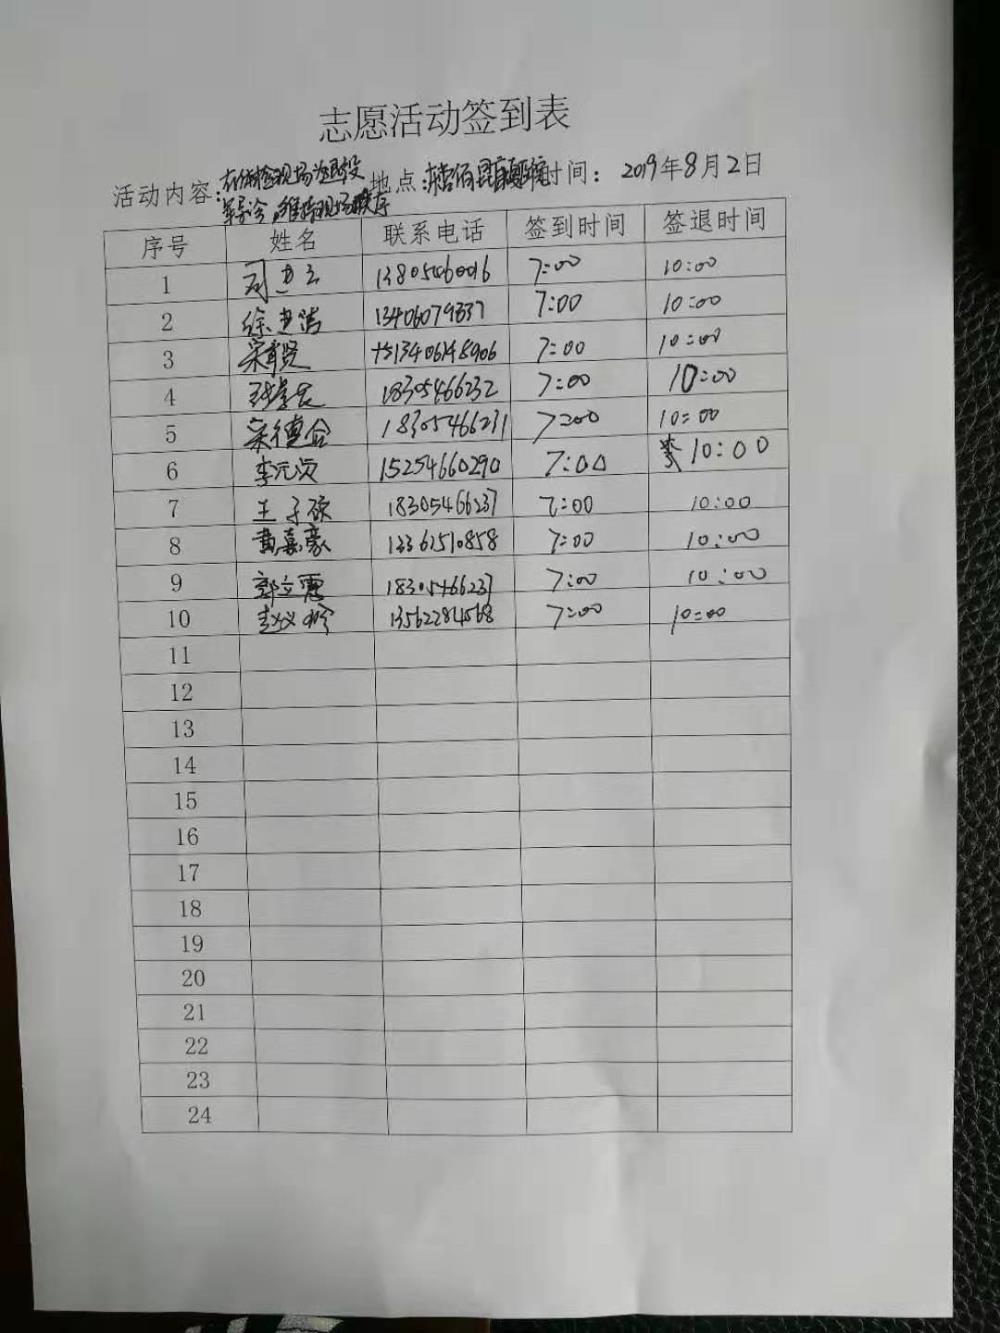 志愿活动签到表
活动内容：在体检现场为退役 地点： 时间： 2019年8月2日
军导诊，维护现场秩序
序号 姓名 联系电话 签到时间 签退时间
1 13805460016 7:00 10:00
2 徐建洁 13406079337 7:00 10:00
3 13406148906 7:00 10:00
4 18305466232 7:00 10:00
5 宋德合 18305466231 7:00 10:00
6 李元波 15254660290 7:00 10:00
7 王子硕 18305466237 7:00 10:00
8 黄嘉豪 13361510858 7:00 10:00
9 18305466237 7:00 10:00
10 13562284568 7:00 10:00
11
12
13
14
15
16
17
18
19
20
21
22
23
24